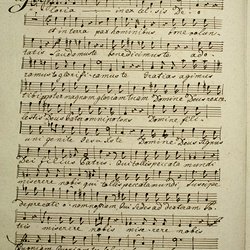 Gloria in excelsis De
et in terra pax hominibus bonae volun
tatis Laudamus te benedicimus te ado
ramus te glorificamus te Gratias agimus
tibi propter magnam gloriam tuam Domine Deus rex cae
lestis Deus Pater omnipotens Domine fili
unigenite Jesu Domine Deus Agnus
Dei Filius Patris Qui tollis peccata mundi
miserere nobis qui tollis peccata mundi suscipe
deprecati o nem nostram Qui sedes ad dextram Pa
tris miserere nobis miserere nobis
Quoniam